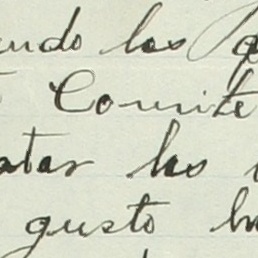 ndo los
Comite
atar los
gusto